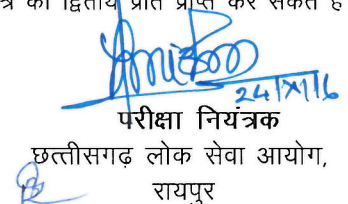 की द्वितीय प्रति प्राप्त कर सकते
परीक्षा नियंत्रक
छत्तीसगढ़ लोक सेवा आयोग,
रायपुर